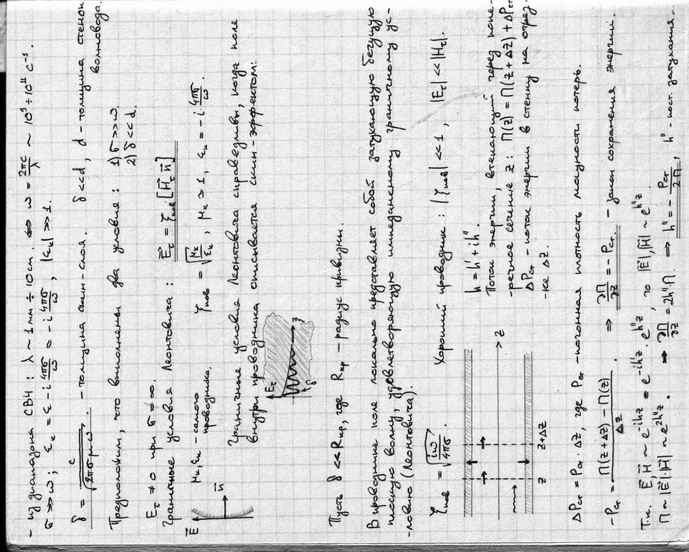 - из диапазона СВЧ: λ ~ 1 мм ÷ 10 см. ⇔ ω = 2πc/λ ~ 10⁹ ÷ 10¹¹ с⁻¹.
σ >> ω; ε_k = ε - i 4πσ/ω ≈ -i 4πσ/ω, |ε_k| >> 1.
δ = c/√(2πσμω) - толщина скин-слоя. δ << d, d - толщина стенок волновода.
Предположим, что выполнены два условия: 1) σ >> ω.
2) δ << d.
E_τ ≠ 0 при σ ≠ ∞.
Граничные условия Леонтовича: E_τ = ζ_пов [H_τ n]
μ_k, ε_k - самого проводника. ζ_пов = √(μ_k/ε_k), μ_k ≈ 1, ε_k = -i 4πσ/ω.
E
n
Граничные условия Леонтовича справедливы, когда поле
внутри проводника описывается скин-эффектом:
E_τ
δ
z
Пусть δ << R_кр, где R_кр - радиус кривизны.
В проводнике поле локально представляет собой затухающую бегущую
плоскую волну, удовлетворяющую импедансному граничному ус-
-ловию (Леонтовича).
ζ_пов = √(iω/4πσ) Хороший проводник: |ζ_пов| << 1, |E_τ| << |H_τ|.
h = h' + ih''
Поток энергии, втекающий через попе-
-речное сечение z: П(z) = П(z+Δz) + ΔP_ст
ΔP_ст - поток энергии в стенку на отрез-
-ке Δz.
z
z+Δz
z
ΔP_ст = P_ст · Δz, где P_ст - погонная плотность мощности потерь.
-P_ст = (П(z+Δz) - П(z))/Δz ⇒ ∂П/∂z = -P_ст - закон сохранения энергии.
Т.к. E, H ~ e^{-ihz} = e^{-ih'z} · e^{h''z}, то |E|, |H| ~ e^{h''z}
П ~ |E|·|H| ~ e^{2h''z} ⇒ ∂П/∂z = 2h''П ⇒ h'' = -P_ст/2П, h'' - пост. затухания.